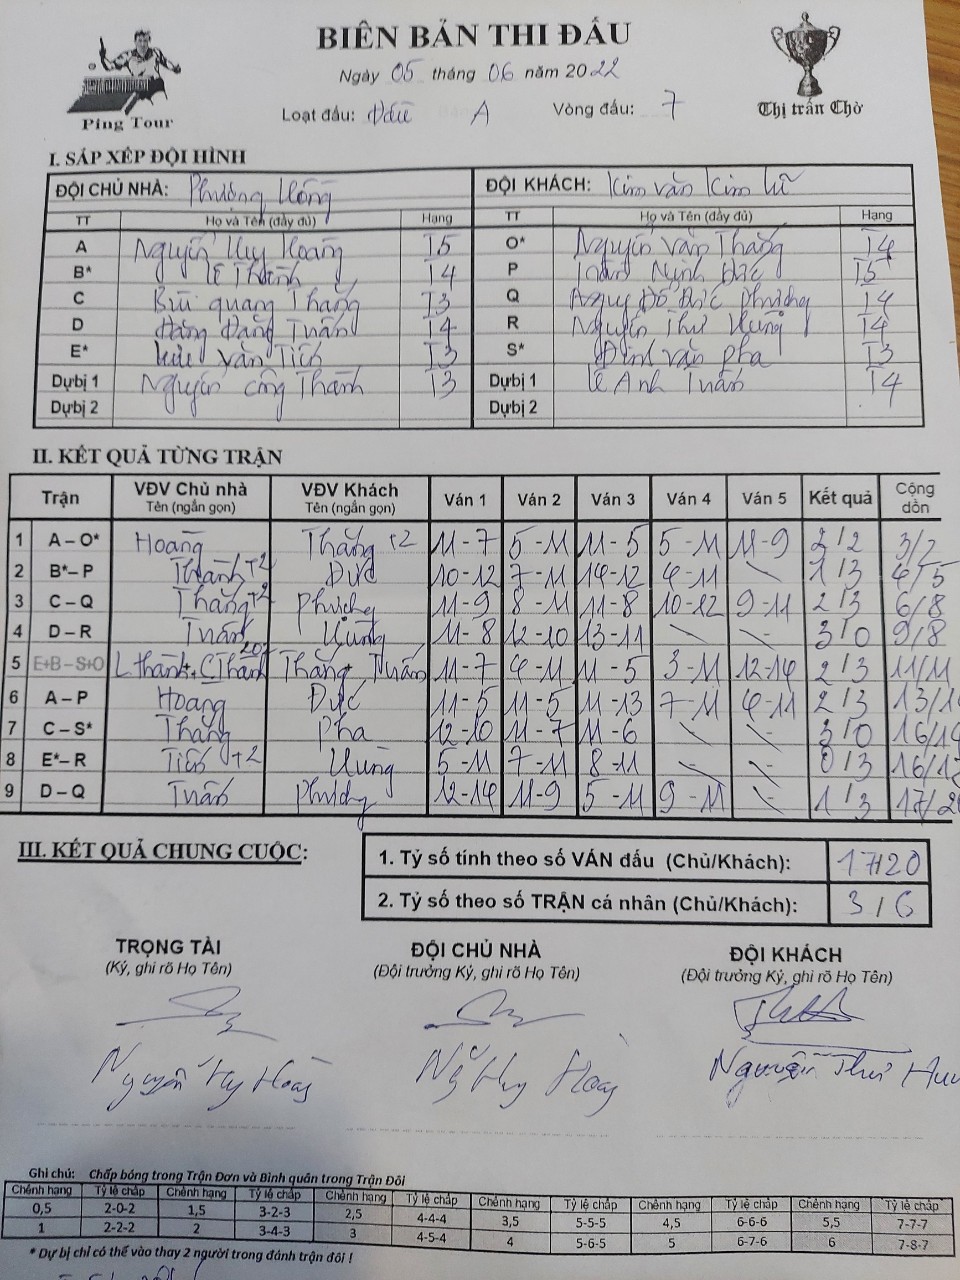 BIÊN BẢN THI ĐẤU
Ngày 05 tháng 06 năm 2022
Loạt đấu: Đấu A Vòng đấu: 7
Ping Tour
Thị trấn Chờ
I. SẮP XẾP ĐỘI HÌNH
ĐỘI CHỦ NHÀ: Phượng Hồng ĐỘI KHÁCH: Kim Văn Kim Lữ
TT Họ và Tên (đầy đủ) Hạng TT Họ và Tên (đầy đủ) Hạng
A Nguyễn Huy Hoàng I5 O* Nguyễn Văn Thắng I4
B* Lê Thành I4 P Ninh Đức I5
C Bùi Quang Thắng I3 Q Đỗ Đức Phương I4
D Đăng Tuấn I4 R Nguyễn Thư Hùng I4
E* Lưu Văn Tiến I3 S* Đinh Văn Pha I3
Dựbị 1 Nguyễn Công Thành I3 Dựbị 1 Lê Anh Tuấn I4
Dựbị 2 Dựbị 2
II. KẾT QUẢ TỪNG TRẬN
Trận VĐV Chủ nhà VĐV Khách Ván 1 Ván 2 Ván 3 Ván 4 Ván 5 Kết quả Cộng dồn
Tên (ngắn gọn) Tên (ngắn gọn)
1 A – O* Hoàng Thắng +2 11-7 5-11 11-5 5-11 11-9 3/2 3/2
2 B*– P Thành +2 Đức 10-12 7-11 14-12 4-11 1/3 4/5
3 C – Q Thắng +2 Phương 11-9 8-11 11-8 10-12 9-11 2/3 6/8
4 D – R Tuấn Hùng 11-8 12-10 13-11 - - 3/0 9/8
5 E+B – S+O L Thành + C Thành 202 Thắng + Tuấn 11-7 4-11 11-5 3-11 12-14 2/3 11/11
6 A – P Hoàng Đức 11-5 11-5 11-13 7-11 4-11 2/3 13/14
7 C – S* Thắng Pha 12-10 11-7 11-6 - - 3/0 16/14
8 E*– R Tiến +2 Hùng 5-11 7-11 8-11 - - 0/3 16/17
9 D – Q Tuấn Phương 12-14 11-9 5-11 9-11 1/3 17/20
III. KẾT QUẢ CHUNG CUỘC:
1. Tỷ số tính theo số VÁN đấu (Chủ/Khách): 17/20
2. Tỷ số theo số TRẬN cá nhân (Chủ/Khách): 3/6
TRỌNG TÀI ĐỘI CHỦ NHÀ ĐỘI KHÁCH
(Ký, ghi rõ Họ Tên) (Đội trưởng Ký, ghi rõ Họ Tên) (Đội trưởng Ký, ghi rõ Họ Tên)
Nguyễn Huy Hoàng Ng Huy Hoàng Nguyễn Thư
Ghi chú: Chấp bóng trong Trận Đơn và Bình quân trong Trận Đôi
Chênh hạng Tỷ lệ chấp Chênh hạng Tỷ lệ chấp Chênh hạng Tỷ lệ chấp Chênh hạng Tỷ lệ chấp Chênh hạng Tỷ lệ chấp Chênh hạng Tỷ lệ chấp
0,5 2-0-2 1,5 3-2-3 2,5 4-4-4 3,5 5-5-5 4,5 6-6-6 5,5 7-7-7
1 2-2-2 2 3-4-3 3 4-5-4 4 5-6-5 5 6-7-6 6 7-8-7
* Dự bị chỉ có thể vào thay 2 người trong đánh trận đôi !